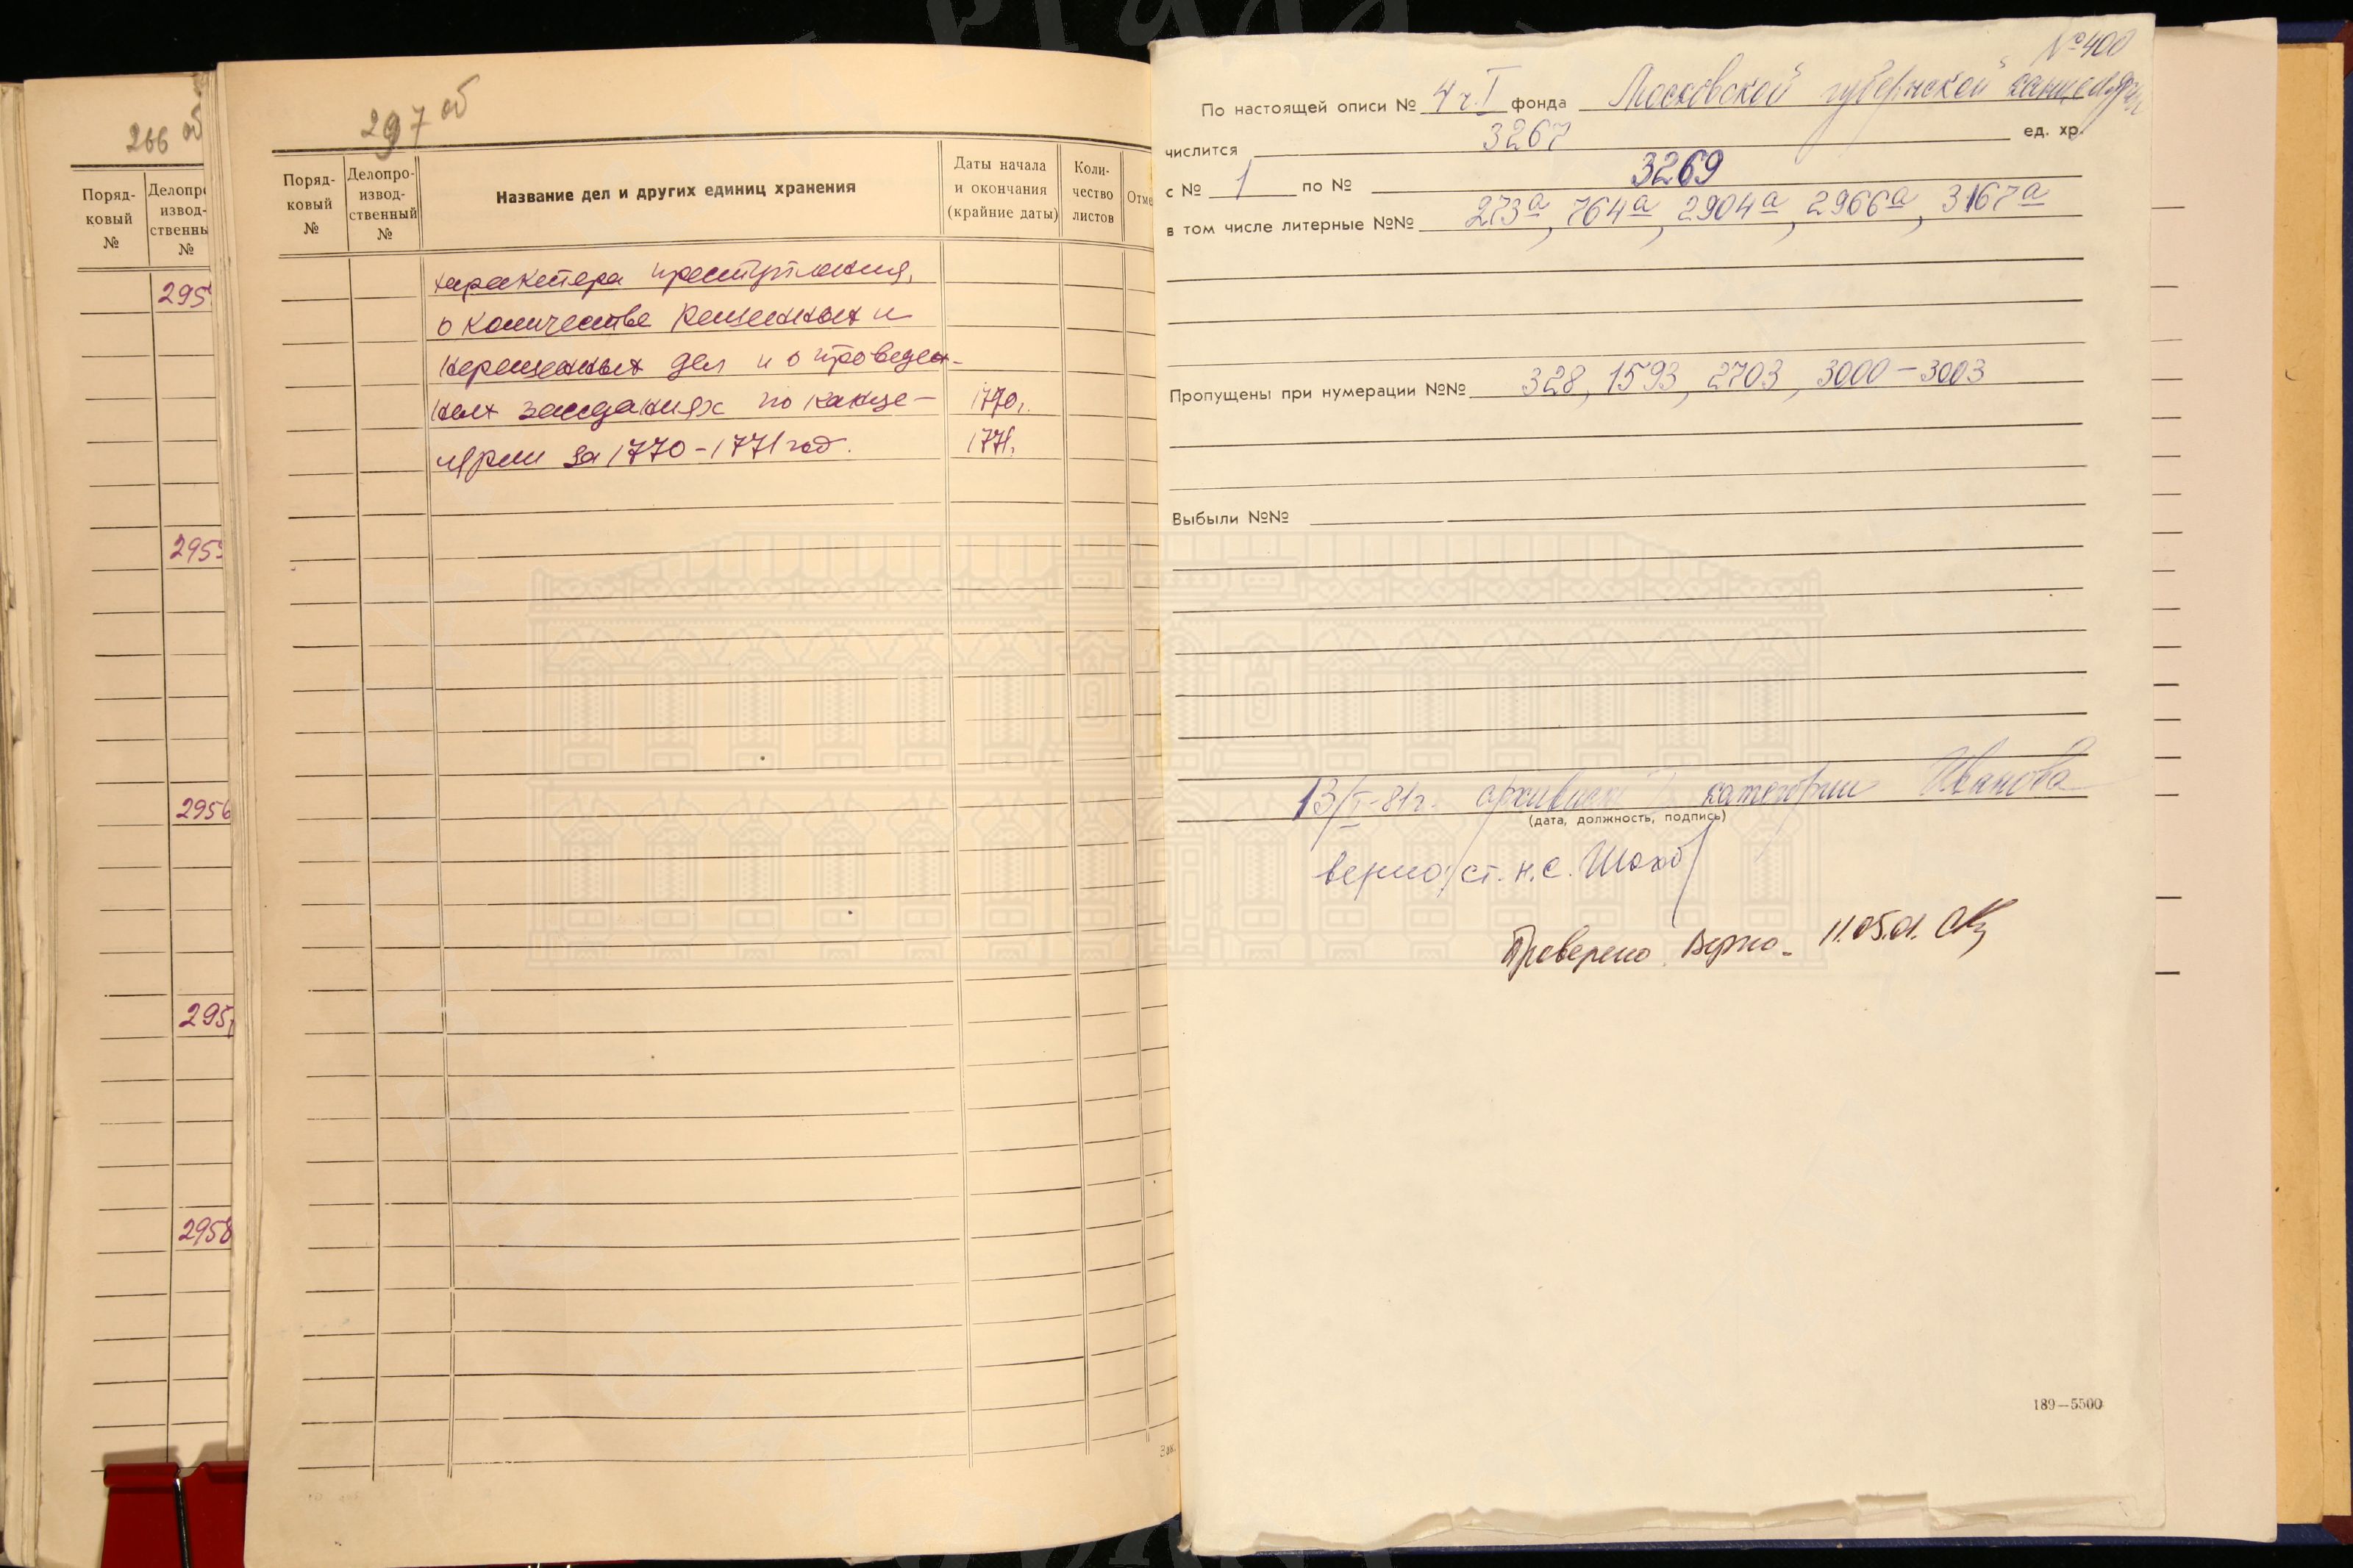 266 об
Поряд-
ковый
№
Делопро
извод-
ственны
№
295
295
2956
295
2958
297 об
Поряд-
ковый
№
Делопро-
извод-
ственный
№
Название дел и других единиц хранения
Даты начала
и окончания
(крайние даты)
Коли-
чество
листов
Отме
характера преступления,
о количестве решенных и
нерешенных дел и о проведен-
ных заседаниях по канце-
лярии за 1770-1771 год.
1770г.
1771.
№ 400
По настоящей описи № 4 ч. I фонда Московской губернской канцелярии
числится 3267 ед. хр.
с № 1 по № 3269
в том числе литерные №№ 273а, 764а, 2904а, 2966а, 3167а
Пропущены при нумерации №№ 328, 1593, 2703, 3000-3003
Выбыли №№
13/I-81г. архивист I категории Иванова
(дата, должность, подпись)
верно: ст. н. с.
Проверено. Верно- 11.05.01.
189—5500